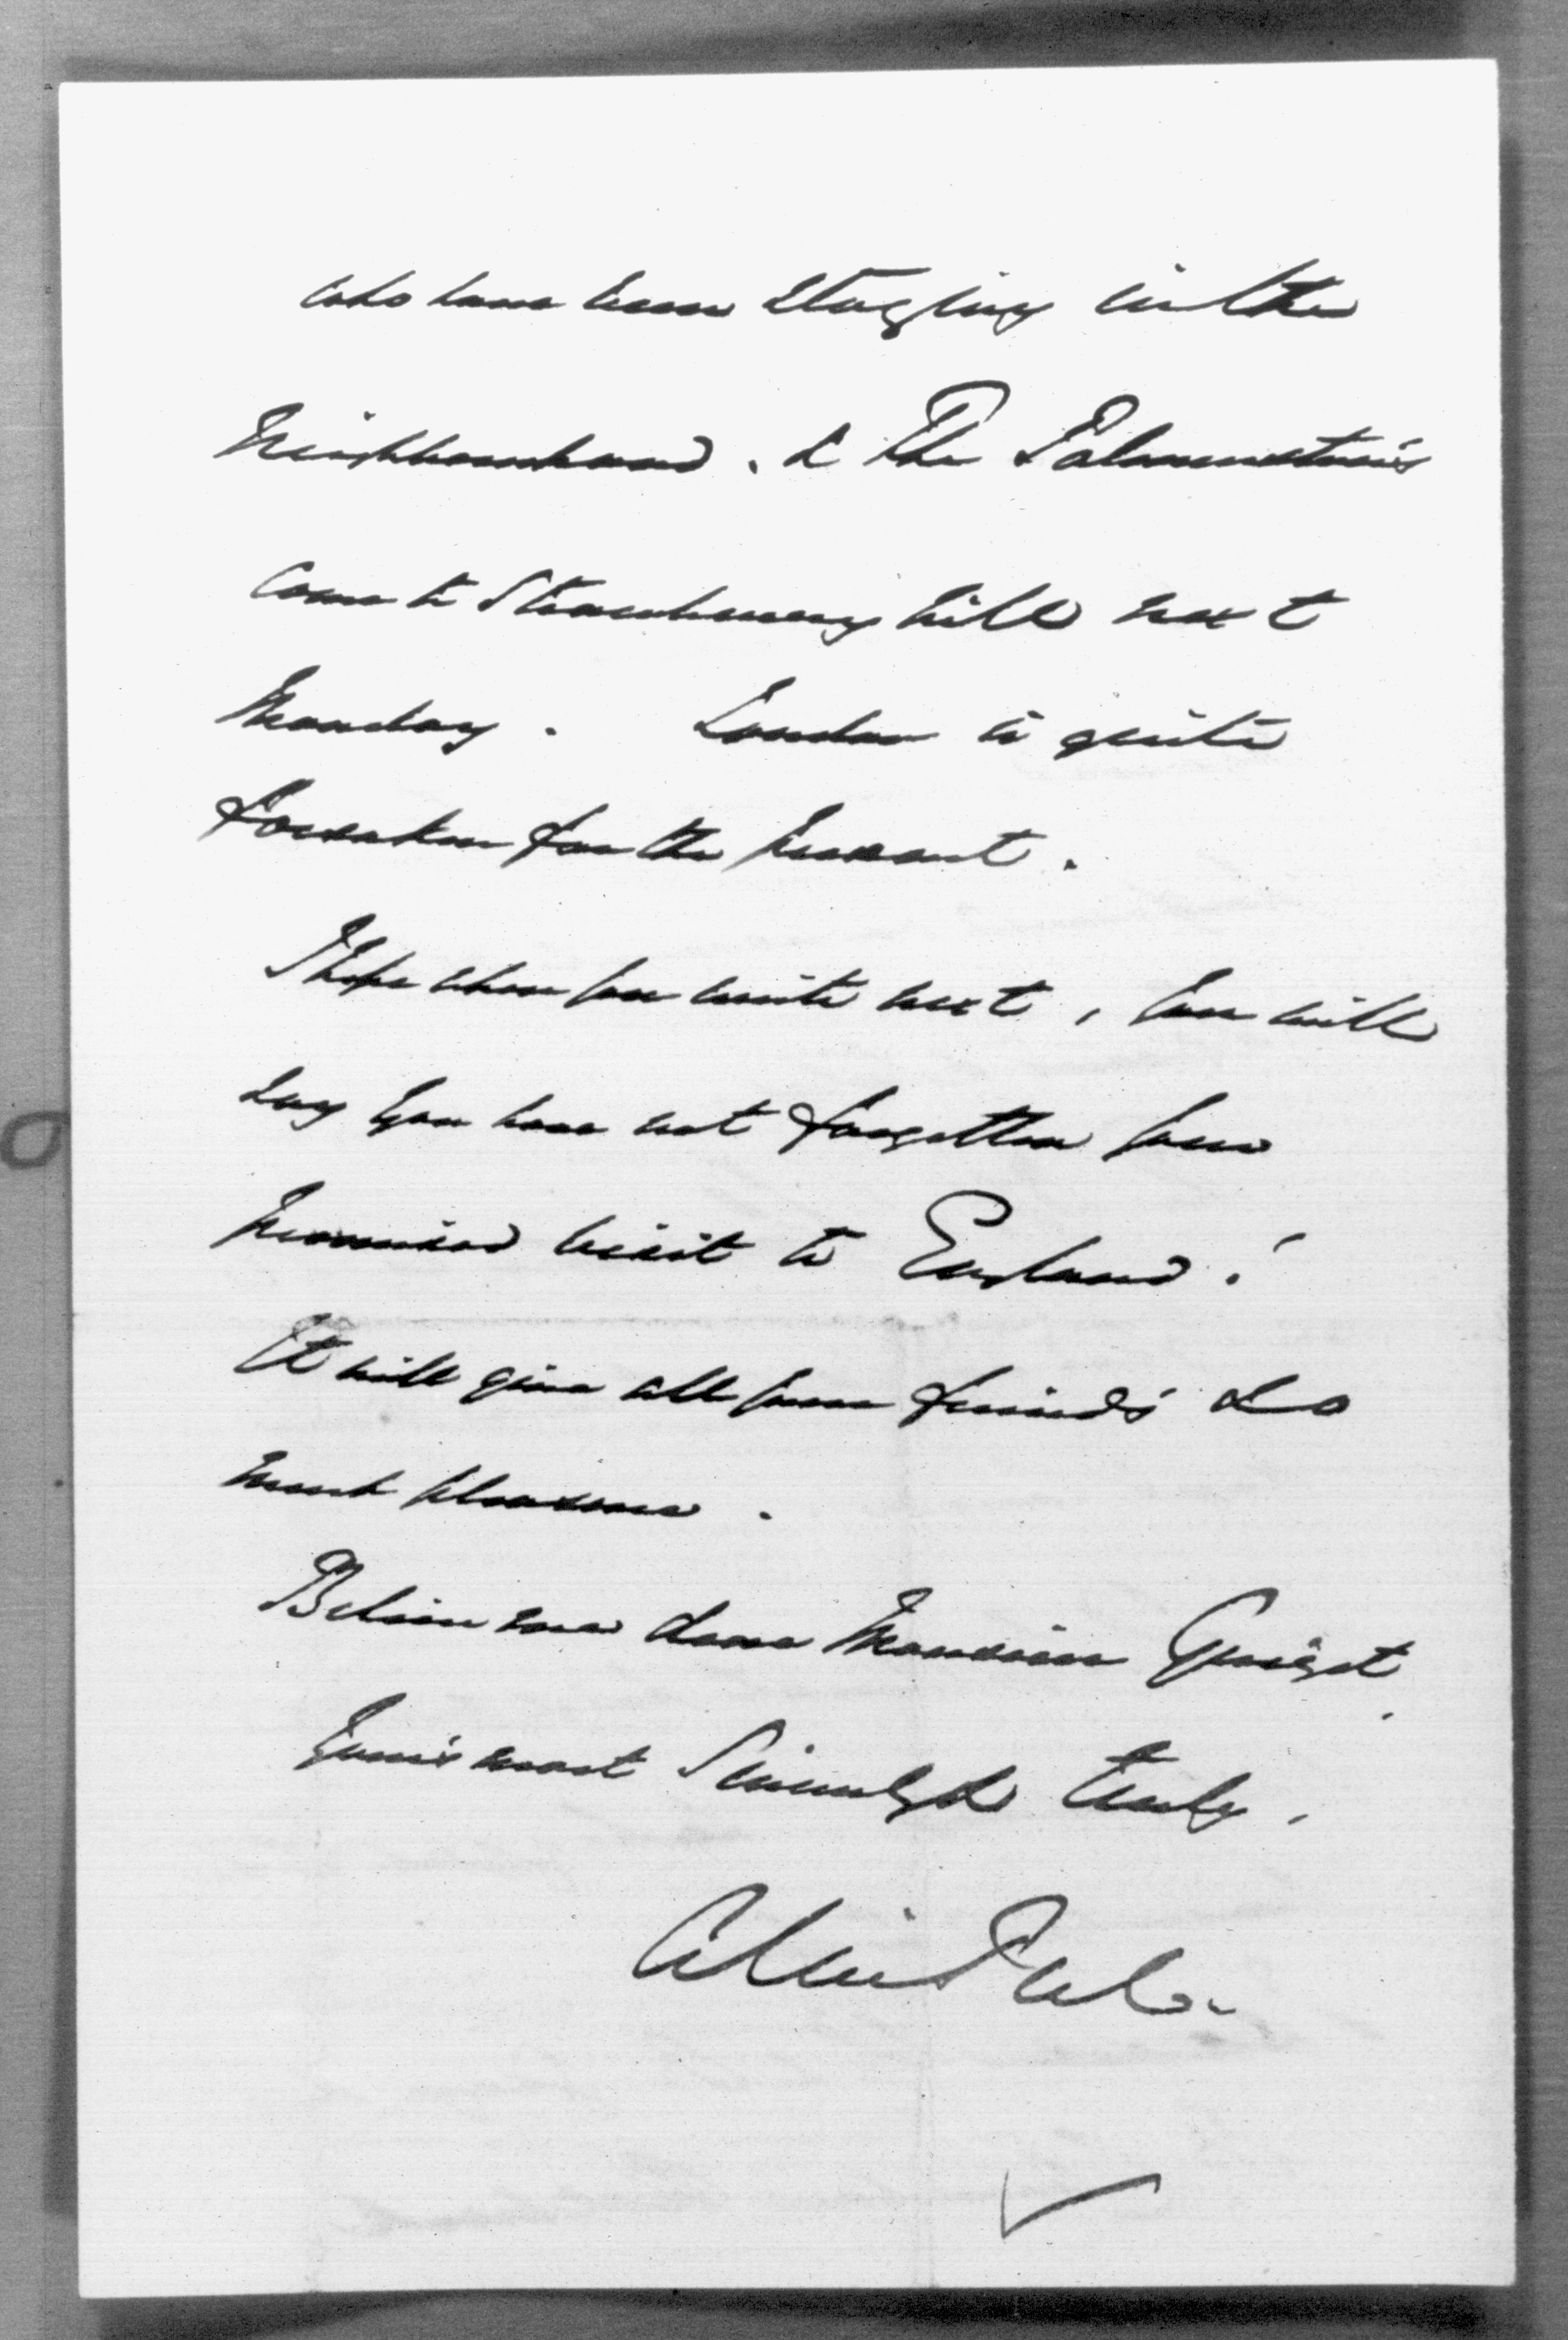 who have been staying in the
Neighbourhood. & The Palmerston's
Come to Strawberry hill next
Monday. London is quite
forsaken for the present.
I hope when you write next, you will
say you have not forgotten your
promised visit to England!
It will give all your friends so
much pleasure.
Believe me dear Monsieur Guizot
Your's most Sincerely & truly,